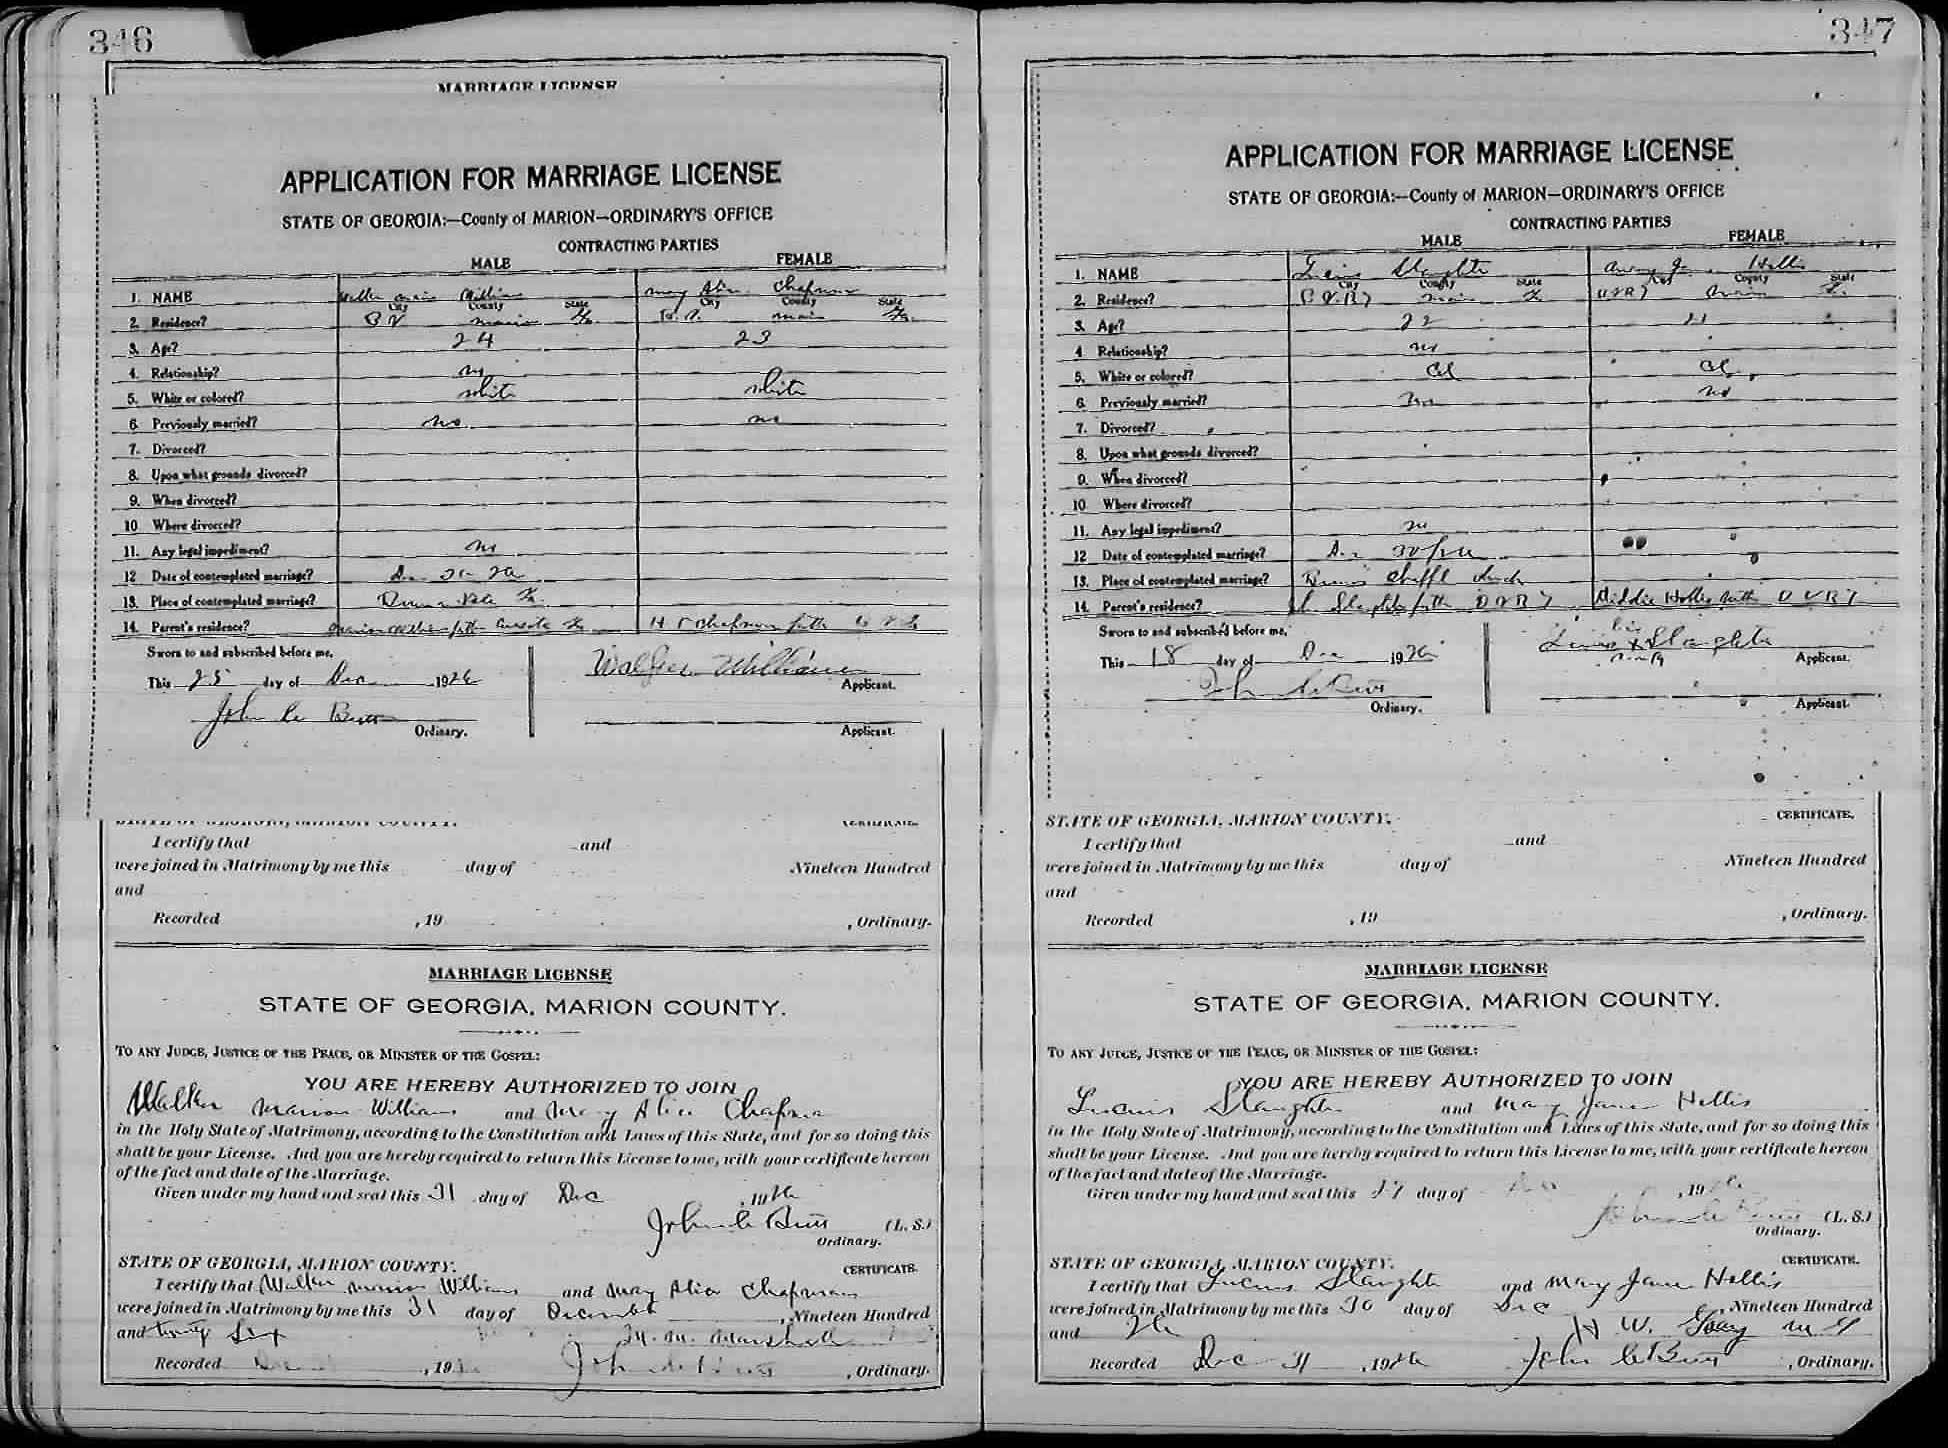 346
MARRIAGE LICENSE
APPLICATION FOR MARRIAGE LICENSE
STATE OF GEORGIA:—County of MARION—ORDINARY'S OFFICE
CONTRACTING PARTIES
MALE FEMALE
1. NAME Williams Chapman
City County State City County State
2. Residence?
3. Age? 24 23
4. Relationship? no
5. White or colored? white white
6. Previously married? no no
7. Divorced?
8. Upon what grounds divorced?
9. When divorced?
10 Where divorced?
11. Any legal impediment? no
12 Date of contemplated marriage?
13. Place of contemplated marriage?
14. Parent's residence? Chapman
Sworn to and subscribed before me,
This 25 day of Dec 1926
Williams
Applicant.
John C Butt
Ordinary.
Applicant.
STATE OF GEORGIA, MARION COUNTY. CERTIFICATE.
I certify that and
were joined in Matrimony by me this day of Nineteen Hundred
and
Recorded , 19 , Ordinary.
MARRIAGE LICENSE
STATE OF GEORGIA, MARION COUNTY.
TO ANY JUDGE, JUSTICE OF THE PEACE, OR MINISTER OF THE GOSPEL:
YOU ARE HEREBY AUTHORIZED TO JOIN
Walker Marion Williams and Mary Alice Chapman
in the Holy State of Matrimony, according to the Constitution and Laws of this State, and for so doing this
shall be your License. And you are hereby required to return this License to me, with your certificate hereon
of the fact and date of the Marriage.
Given under my hand and seal this 31 day of Dec , 1926
John C Butt (L. S.)
Ordinary.
STATE OF GEORGIA, MARION COUNTY. CERTIFICATE.
I certify that Walker Marion Williams and Mary Alice Chapman
were joined in Matrimony by me this 31 day of December , Nineteen Hundred
and twenty Six M. Marshall
Recorded , 19 John C Butt , Ordinary.
347
APPLICATION FOR MARRIAGE LICENSE
STATE OF GEORGIA:—County of MARION—ORDINARY'S OFFICE
CONTRACTING PARTIES
MALE FEMALE
1. NAME Lucius Slaughter Hollis
City County State City County State
2. Residence?
3. Age? 22 21
4 Relationship? no
5. White or colored? Col Col
6. Previously married? no no
7. Divorced?
8. Upon what grounds divorced?
9. When divorced?
10 Where divorced?
11. Any legal impediment? no
12 Date of contemplated marriage?
13. Place of contemplated marriage?
14. Parent's residence? Slaughter Hollis
Sworn to and subscribed before me,
This 18 day of Dec 1926
his
Lucius X Slaughter
mark
Applicant.
John C Butt
Ordinary.
Applicant.
STATE OF GEORGIA, MARION COUNTY. CERTIFICATE.
I certify that and
were joined in Matrimony by me this day of Nineteen Hundred
and
Recorded , 19 , Ordinary.
MARRIAGE LICENSE
STATE OF GEORGIA, MARION COUNTY.
TO ANY JUDGE, JUSTICE OF THE PEACE, OR MINISTER OF THE GOSPEL:
YOU ARE HEREBY AUTHORIZED TO JOIN
Lucius Slaughter and Mary Jane Hollis
in the Holy State of Matrimony, according to the Constitution and Laws of this State, and for so doing this
shall be your License. And you are hereby required to return this License to me, with your certificate hereon
of the fact and date of the Marriage.
Given under my hand and seal this day of , 19
John C Butt (L. S.)
Ordinary.
STATE OF GEORGIA, MARION COUNTY. CERTIFICATE.
I certify that Lucius Slaughter and Mary Jane Hollis
were joined in Matrimony by me this 30 day of Dec , Nineteen Hundred
and 26 H. W. M G
Recorded Dec 31 , 1926 John C Butt , Ordinary.